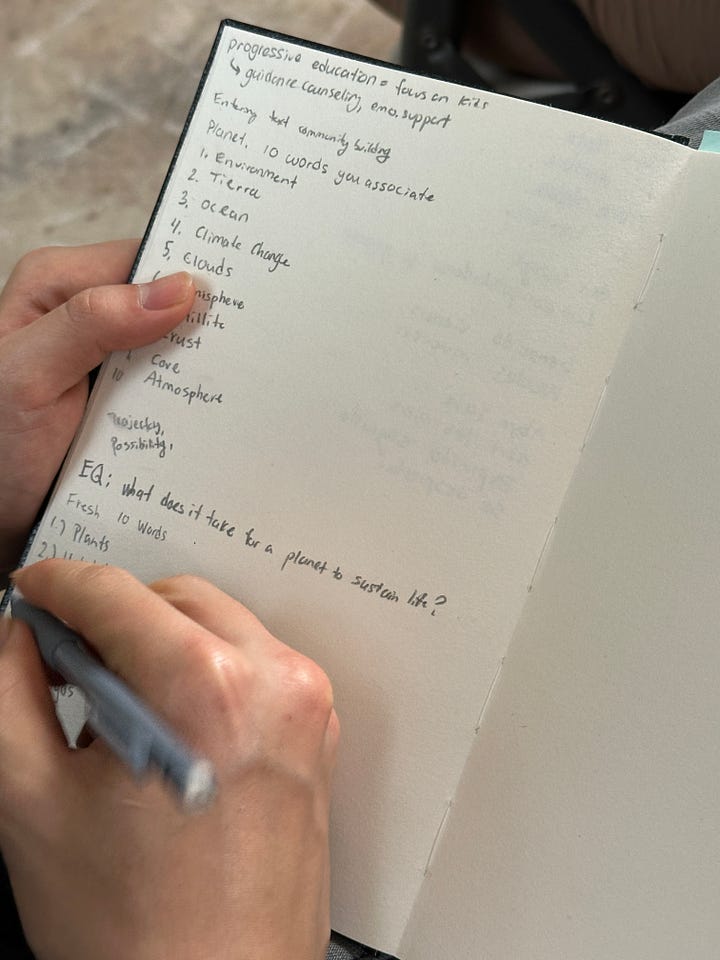 progressive education = focus on kids
↳ guidance counseling, emo. support
Entering text community building
Planet, 10 words you associate
1. Environment
2. Tierra
3. ocean
4. Climate Change
5. Clouds
misphere
rust
Core
10 Atmosphere
Possibility,
EQ: what does it take for a planet to sustain life?
Fresh 10 Words
1.) Plants
2.)